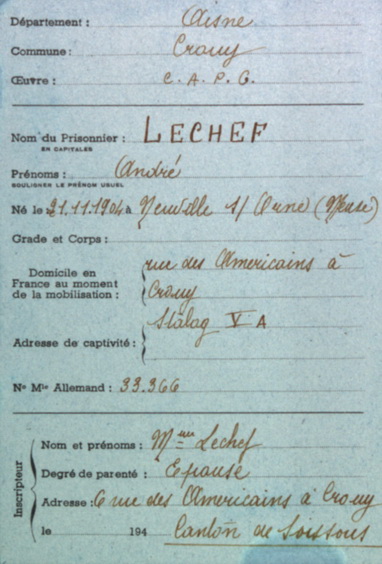 Département : Aisne
Commune : Crouy
Œuvre : C. A. P. G.
Nom du Prisonnier : LECHEF
EN CAPITALES
Prénoms : André
SOULIGNER LE PRÉNOM USUEL
Né le 21.11.1904 à Neuville s/ Orne (Meuse)
Grade et Corps :
Domicile en France au moment de la mobilisation : rue des Américains à
Crouy
Adresse de captivité : Stalag V A
No Mle Allemand : 33.366
Inscripteur
Nom et prénoms : Mme Lechef
Degré de parenté : Epouse
Adresse : 6 rue des Américains à Crouy
le 194 Canton de Soissons